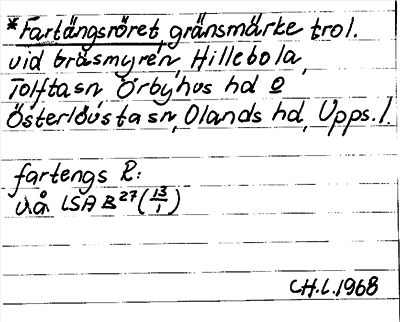 *Fartängsröret, gränsmärke trol.
vid Gräsmyren, Hillebola,
Tolfta sn, Örbyhus hd o
Österlövsta sn, Olands hd, Upps. l.
fartengs R:
LSA B27 (13/1)
CH.L.1968